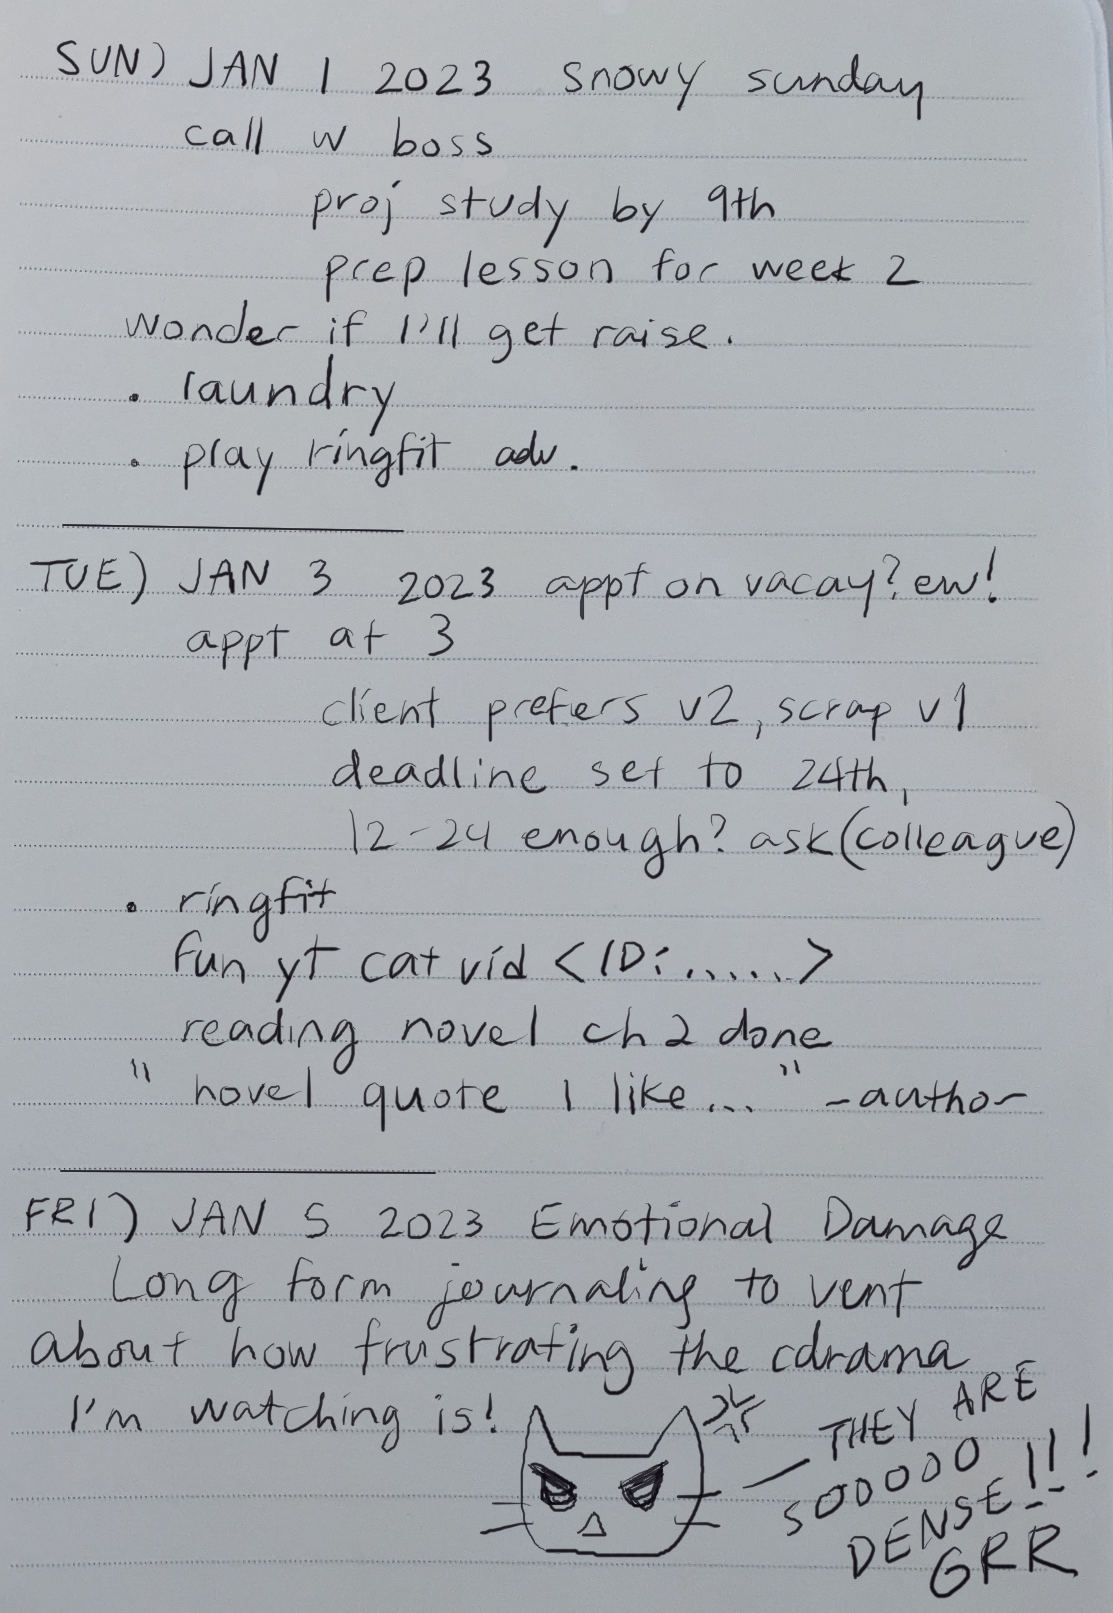 SUN) JAN 1 2023 snowy sunday
call w boss
proj study by 9th
prep lesson for week 2
wonder if I'll get raise.
• laundry
• play ringfit adv.
TUE) JAN 3 2023 appt on vacay? ew!
appt at 3
client prefers v2, scrap v1
deadline set to 24th,
12-24 enough? ask (colleague)
• ringfit
fun yt cat vid <ID: ......>
reading novel ch 2 done
" novel quote I like... " -author
FRI) JAN 5 2023 Emotional Damage
Long form journaling to vent
about how frustrating the cdrama
I'm watching is!
THEY ARE
SOOOOO
DENSE!!!
GRR